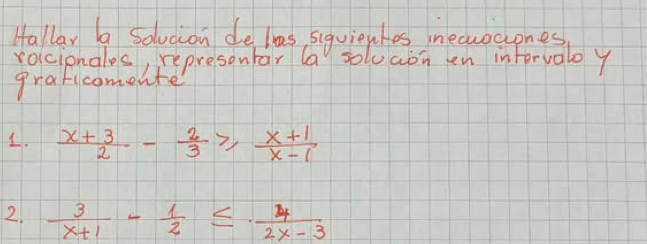 Hallar la Solución de las siguientes inecuaciones
racionales, representar la solución en intervalo y
graficamente
1. \frac{x+3}{2} - \frac{2}{3} ≥ \frac{x+1}{x-1}
2. \frac{3}{x+1} - \frac{1}{2} ≤ \frac{4}{2x-3}